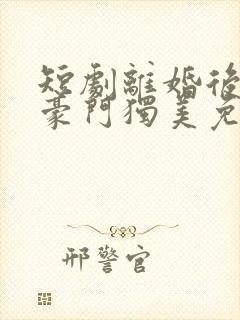 短劇離婚後
豪門獨美免
邢警官